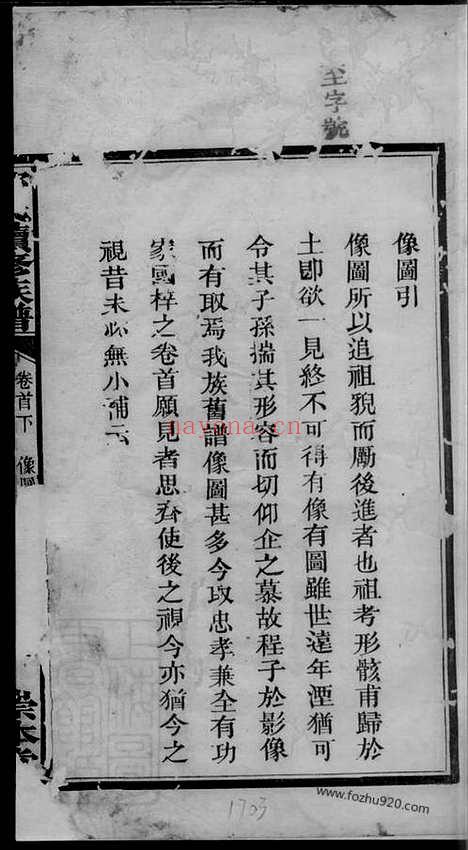 至字號
像圖引
像圖所以追祖貌而勵後進者也祖考形骸甫歸於
土卽欲一見終不可得有像有圖雖世遠年湮猶可
令其子孫揣其形容而切仰企之慕故程子於影像
而有取焉我族舊譜像圖甚多今取忠孝兼全有功
家國梓之卷首願見者思齊使後之視今亦猶今之
視昔未必無小補云
續修族譜
卷首下
像圖
崇本堂
1703
nayona.cn
www.fozhu920.com